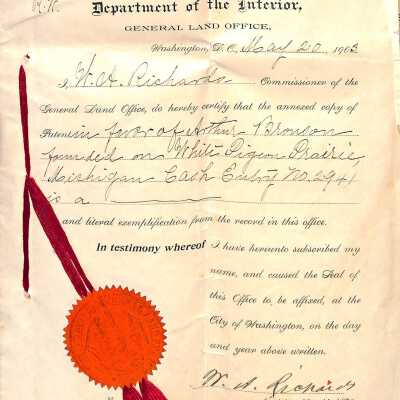 Department of the Interior,
GENERAL LAND OFFICE,
Washington, D. C. May 20, 1903
I, W. A. Richards Commissioner of the
General Land Office, do hereby certify that the annexed copy of
Patent in favor of Arthur Bronson
founded on White Pigeon Prairie
Michigan Cash Entry No. 2941
is a
and literal exemplification from the record in this office.
In testimony whereof I have hereunto subscribed my
name, and caused the Seal of
this Office to be affixed, at the
City of Washington, on the day
and year above written.
W. A. Richards